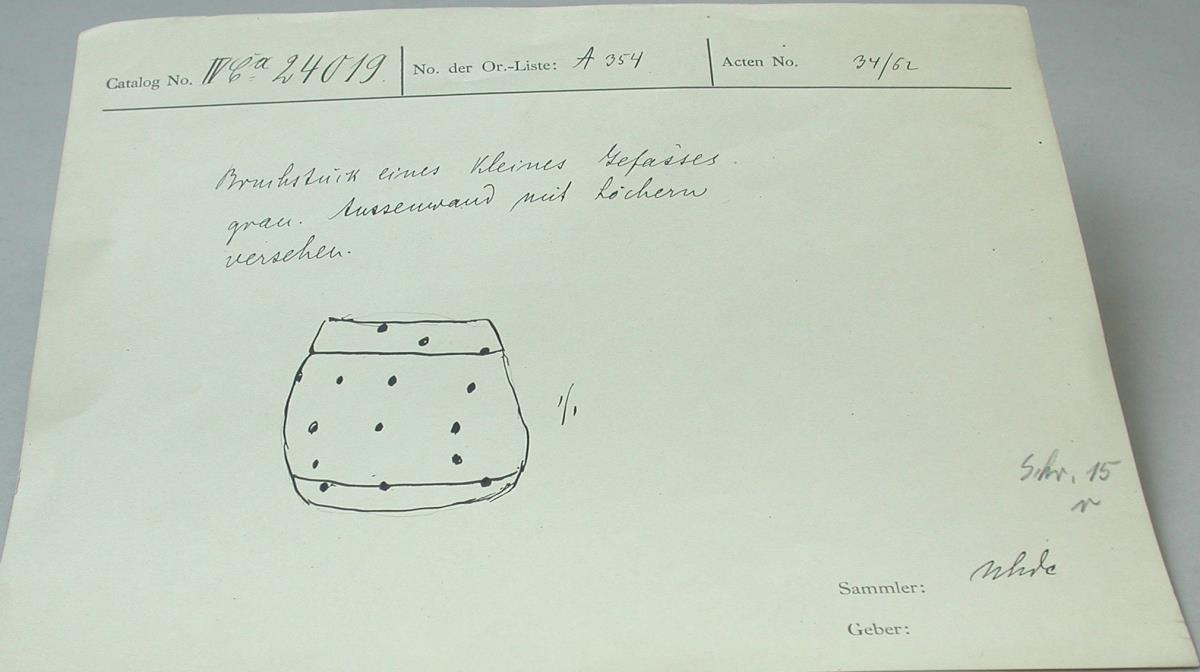 Catalog No. IV Ca 24019 No. der Or.-Liste: A 354 Acten No. 34/62
Bruchstück eines kleines Gefässes.
grau. Aussenwand mit Löchern
versehen.
1/1
Schr. 15
Sammler: Uhde
Geber: